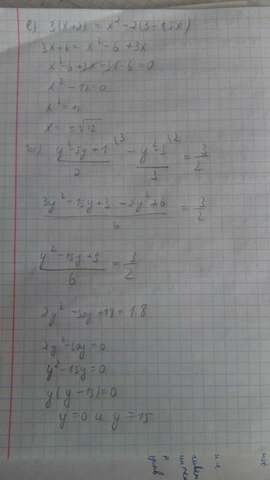 в) 3(x+2) = x² - 2(3 - 1,5x)
3x+6 = x² - 6 + 3x
x² - 6 + 3x - 3x - 6 = 0
x² - 12 = 0
x² = 12
x = ±√12
(y² - 5y + 1)/2 \3 - (y² - 3)/3 \2 = 3/2
(3y² - 15y + 3 - 2y² + 6)/6 = 3/2
(y² - 15y + 9)/6 = 3/2
2y² - 30y + 18 = 18
2y² - 30y = 0
y² - 15y = 0
y(y - 15) = 0
y = 0 и y = 15